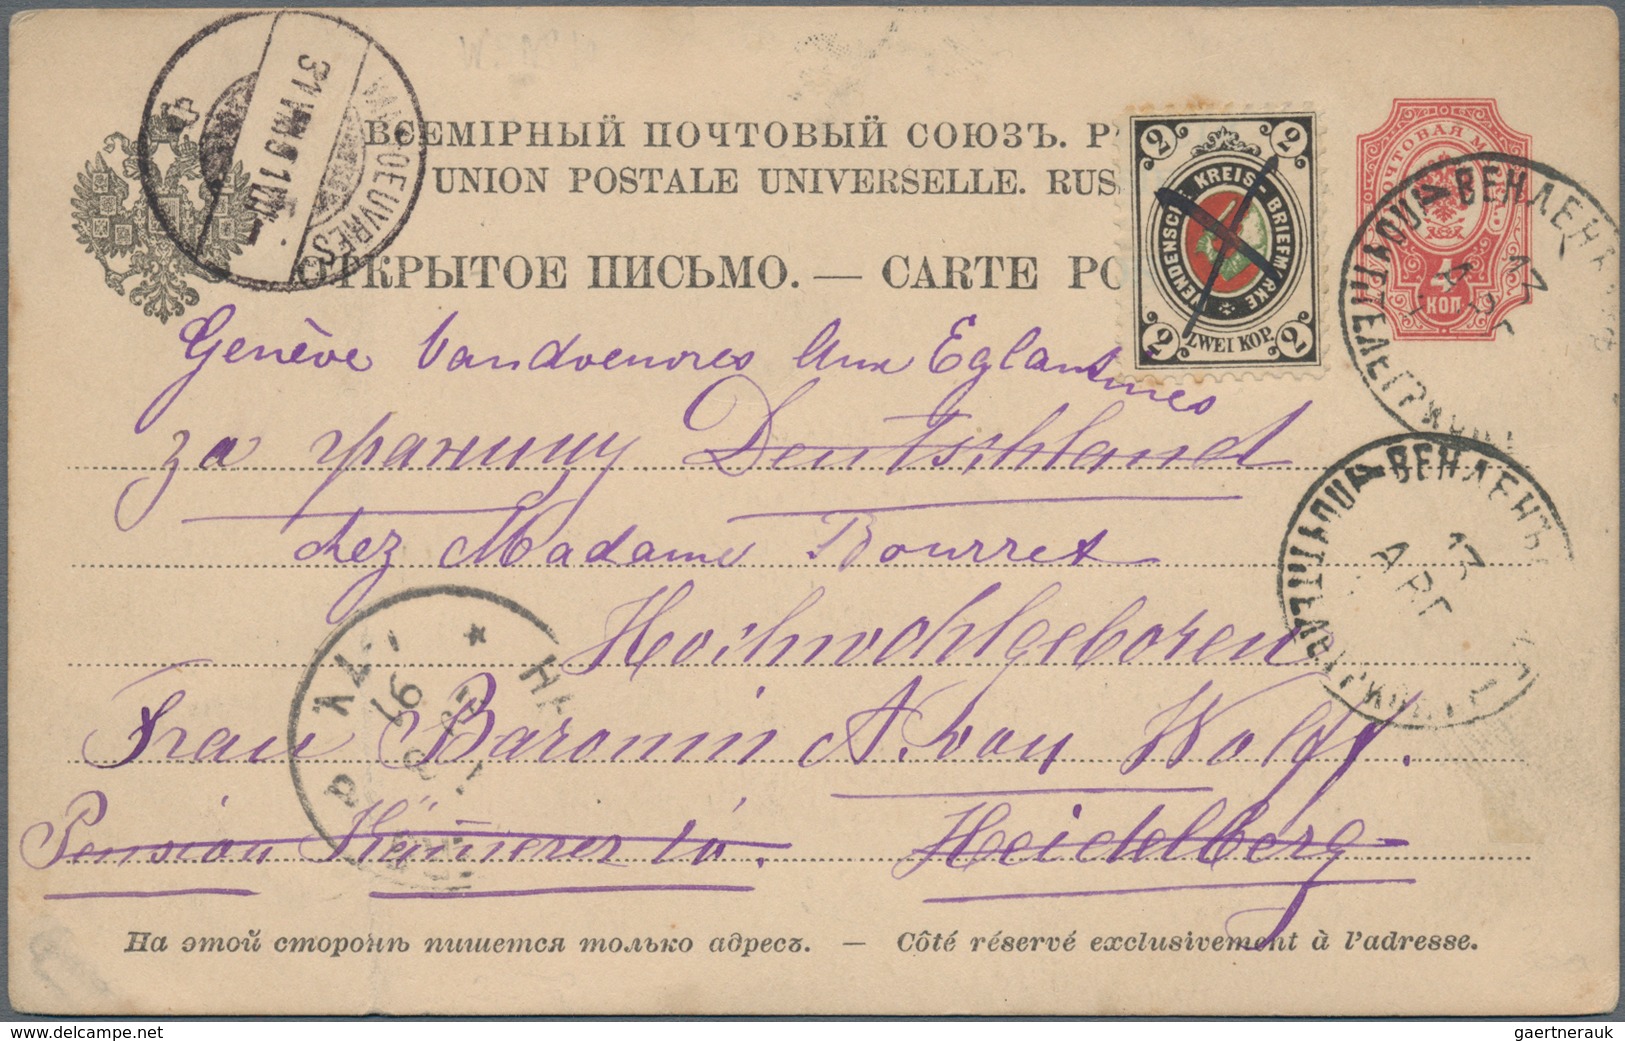 ВСЕМІРНЫЙ ПОЧТОВЫЙ СОЮЗЪ. Р
UNION POSTALE UNIVERSELLE. RUS
ОТКРЫТОЕ ПИСЬМО. — CARTE PO
VANDOEUVRES
31 VIII 91
2 2
WENDENSCHE KREIS-BRIEFMARKE
2 ZWEI KOP. 2
ПОЧТОВАЯ М
4
КОП.
ВЕНДЕНЪ
ПОЧТ. ТЕЛЕГР.
17
АВГ
ВЕНДЕНЪ
17
АВГ
Genève Vandoeuvres Aux Eglantines
за границу Deutschland
chez Madame Bourret
Hochwohlgeboren
Frau Baronin A. von Wolff.
Pension Kümmerer in Heidelberg
91
На этой сторонѣ пишется только адресъ. — Côté réservé exclusivement à l'adresse.
www.delcampe.net
gaertnerauk